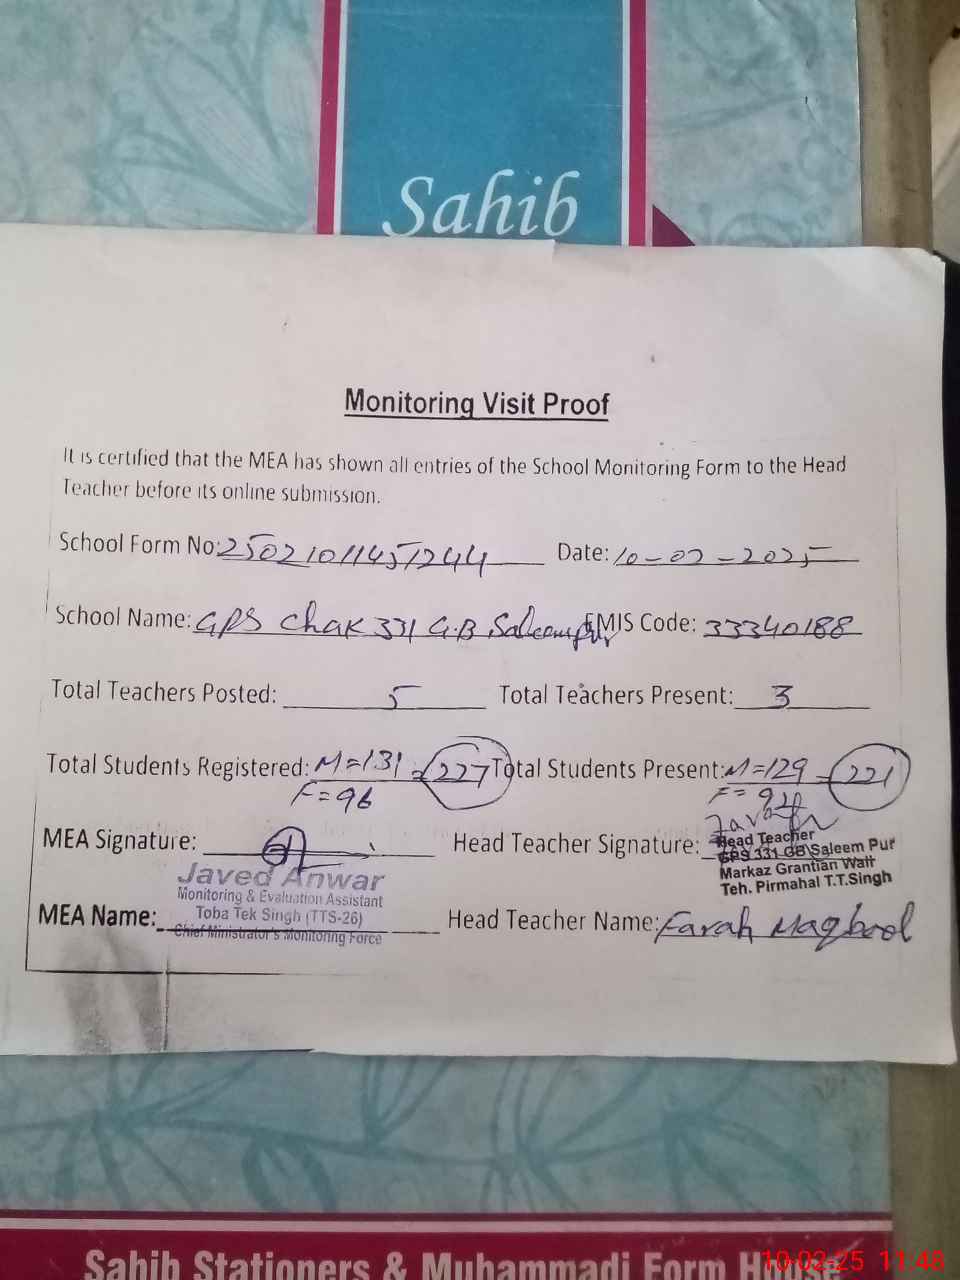 Sahib
Monitoring Visit Proof
It is certified that the MEA has shown all entries of the School Monitoring Form to the Head
Teacher before its online submission.
School Form No: 25021011451244 Date: 10-02-2025
School Name: GPS Chak 331 G.B Saleempur EMIS Code: 33340188
Total Teachers Posted: 5 Total Teachers Present: 3
Total Students Registered: M=131 = 227 Total Students Present: M=129 = 221
F=96 F=92
MEA Signature: Head Teacher Signature:
Head Teacher
GPS 331 GB Saleem Pur
Markaz Grantian Wali
Teh. Pirmahal T.T.Singh
Javed Anwar
Monitoring & Evaluation Assistant
Toba Tek Singh (TTS-26)
Chief Ministrator's Monitoring Force
MEA Name: Head Teacher Name: Farah Maqbool
Sahib Stationers & Muhammadi Form
10-02-25 11:48